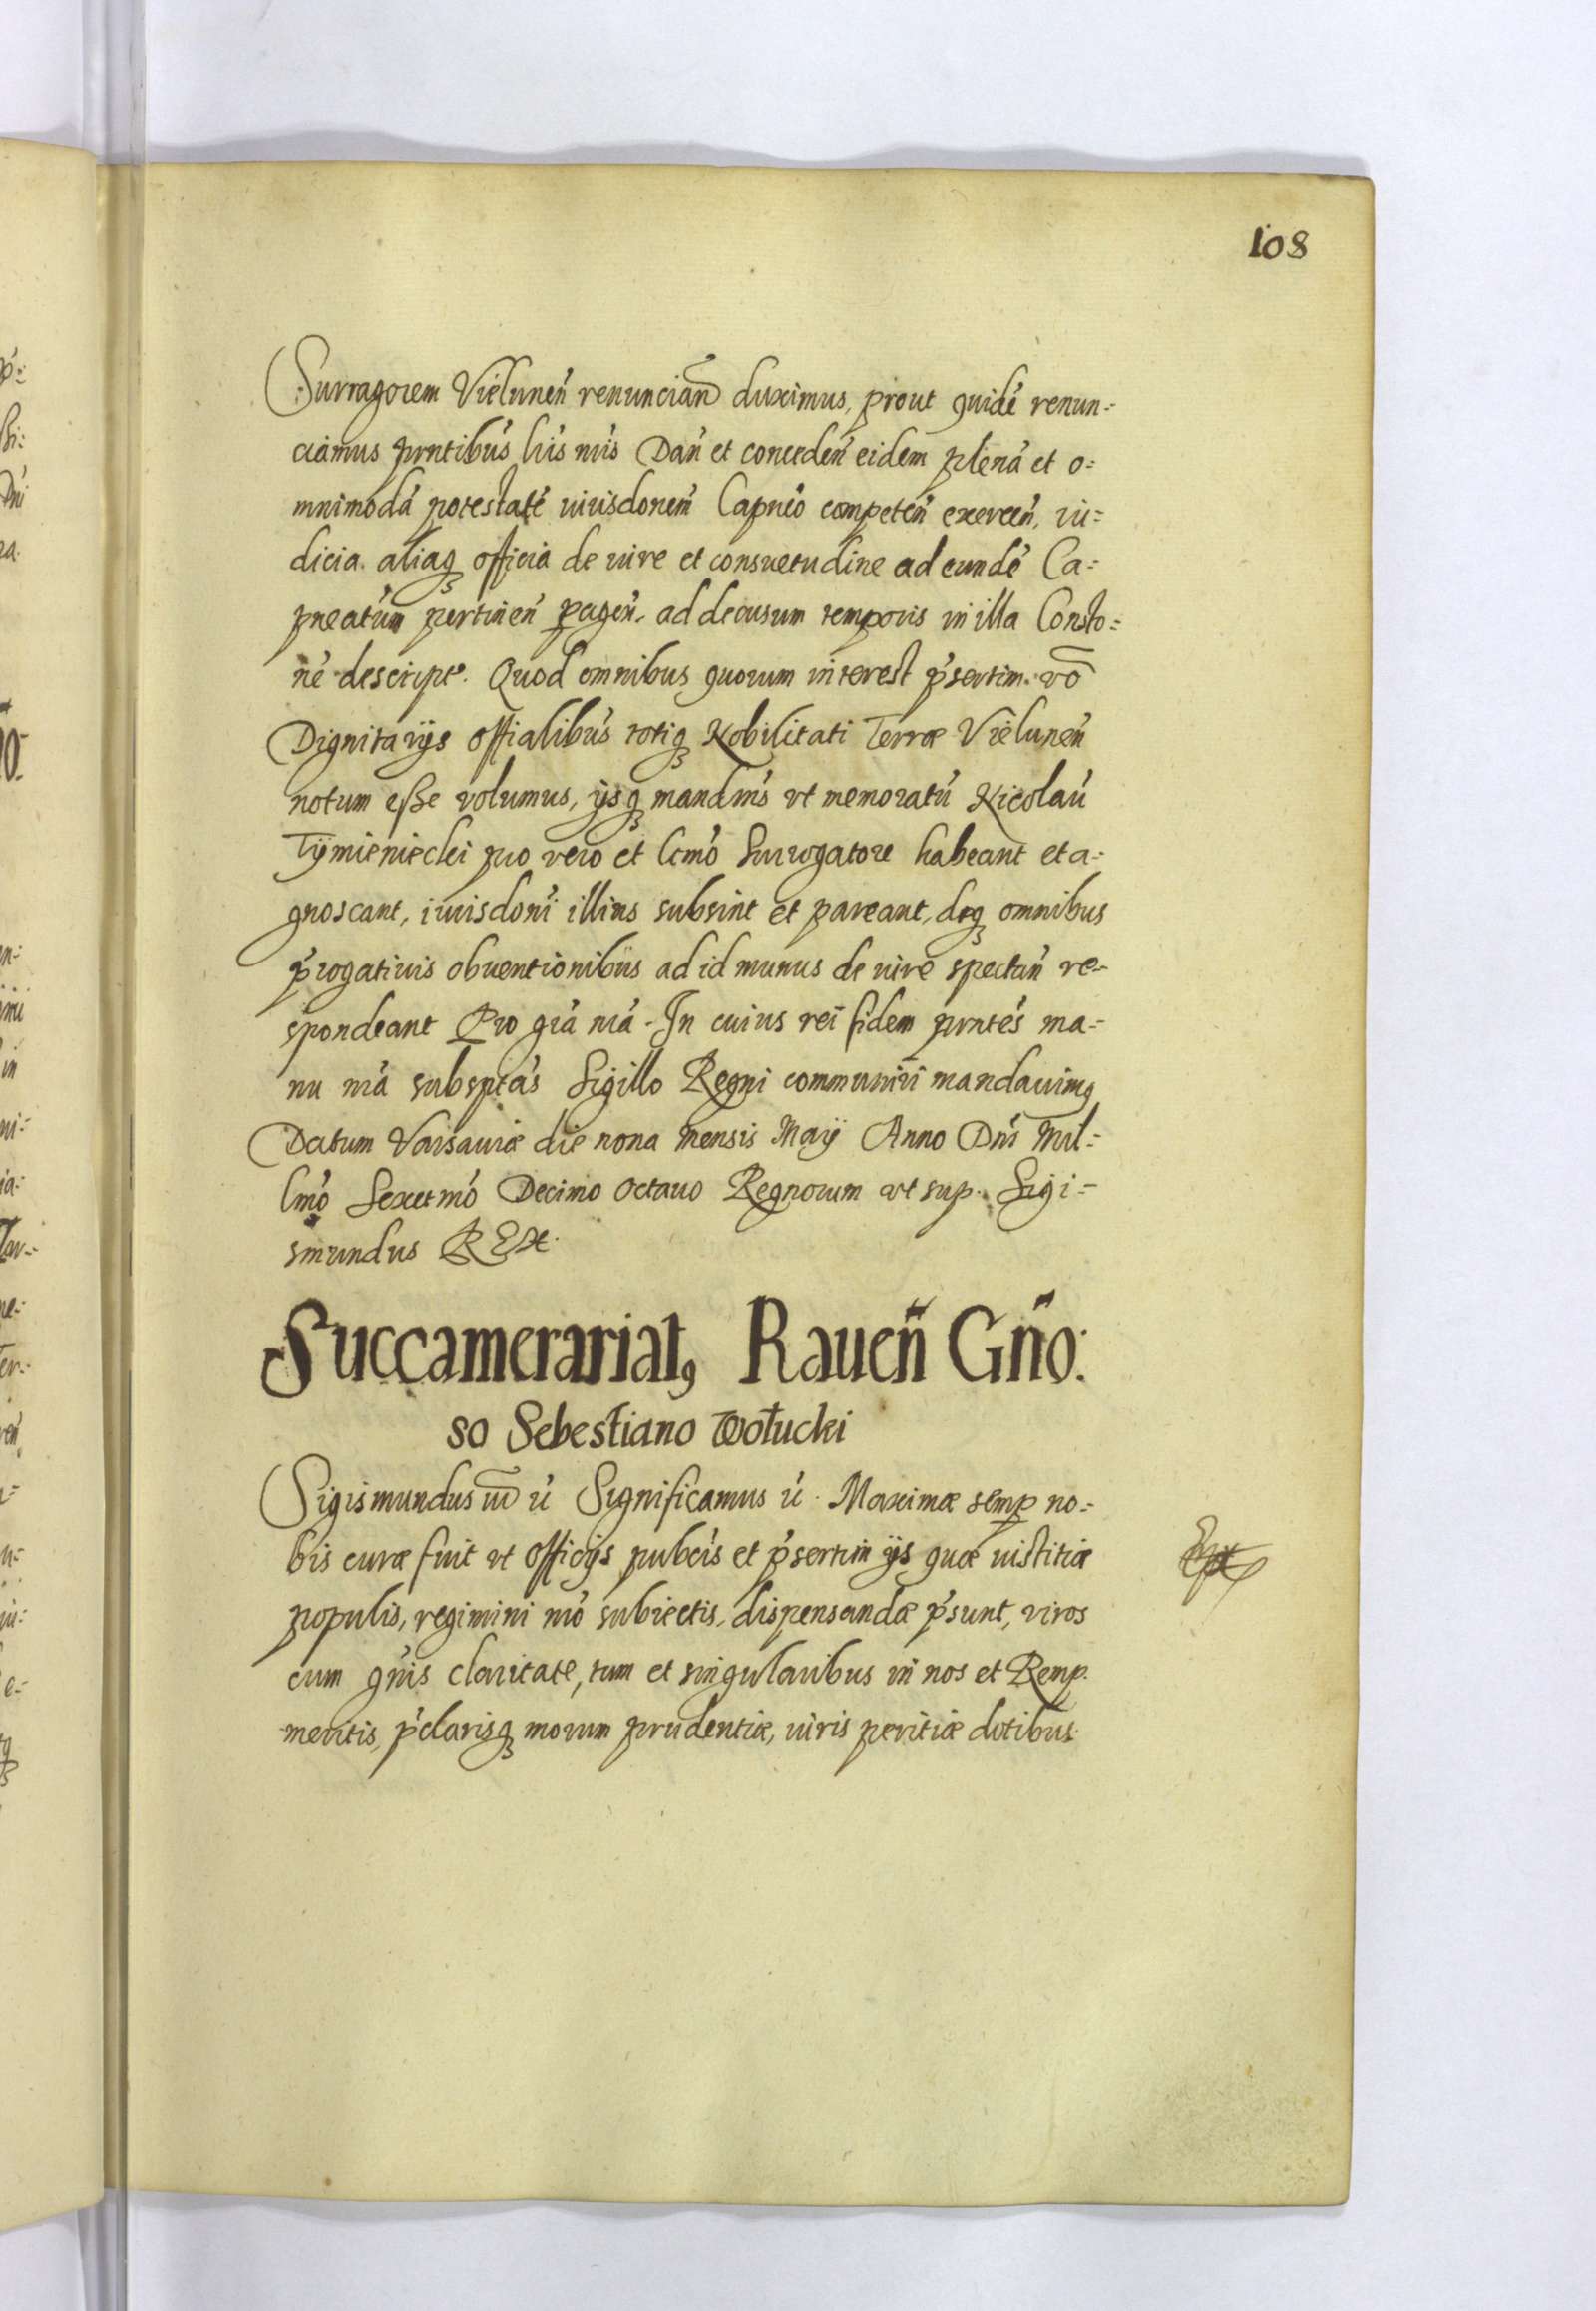 108
Surragorem Vielunen̄ renuncian̄ duximus, prout quidē renun=
ciamus prntibus lris nris Dan̄ et conceden̄ eidem plenā et o=
mnimodā potestatē iurisdonem̄ Capneo competen̄ exercen̄, iu=
dicia aliaq₃ officia de iure et consuetudine ad eundē Ca=
pneatum pertinen̄ peragen̄, ad decursum temporis in illa Consto=
ne descript̄. Quod omnibus quorum interest p̄sertim. vō
Dignitarijs offialibus totiq₃ Nobilitati Terræ Vielunen̄
notum esse volumus, ijsq₃ mandms vt memoratū Nicolaū
Tÿmieniecki pro vero et lt̄mo Surrogatore habeant et a=
gnoscant, iurisdoni illius subsint et pareant, deq₃ omnibus
p̄rogatiuis obuentionibus ad id munus de iure spectan̄ re=
spondeant Pro grā nrā. In cuius rei fidem prntes ma=
nu nrā subsptas Sigillo Regni communiri mandauimꝯ
Datum Varsauiæ die nona mensis Maij Anno Dni Mil=
lmo Sexctmo Decimo octauo Regnorum vt sup. Sigi=
smundus REX.
Succamerariatꝯ Rauen̄ Gn̄o:
so Sebestiano Wołucki
Sigismundus III ū Significamus ū. Maximæ semp no=
bis curæ fuit vt officijs pubcis et p̄sertim ijs quæ iustitiæ
populis, regimini nro subiectis, dispensandæ p̄sunt, viros
cum gn̄is claritate, tum et singularibus in nos et Remp.
meritis, p̄clarisq₃ morum prudentiæ, iuris peritiæ dotibus